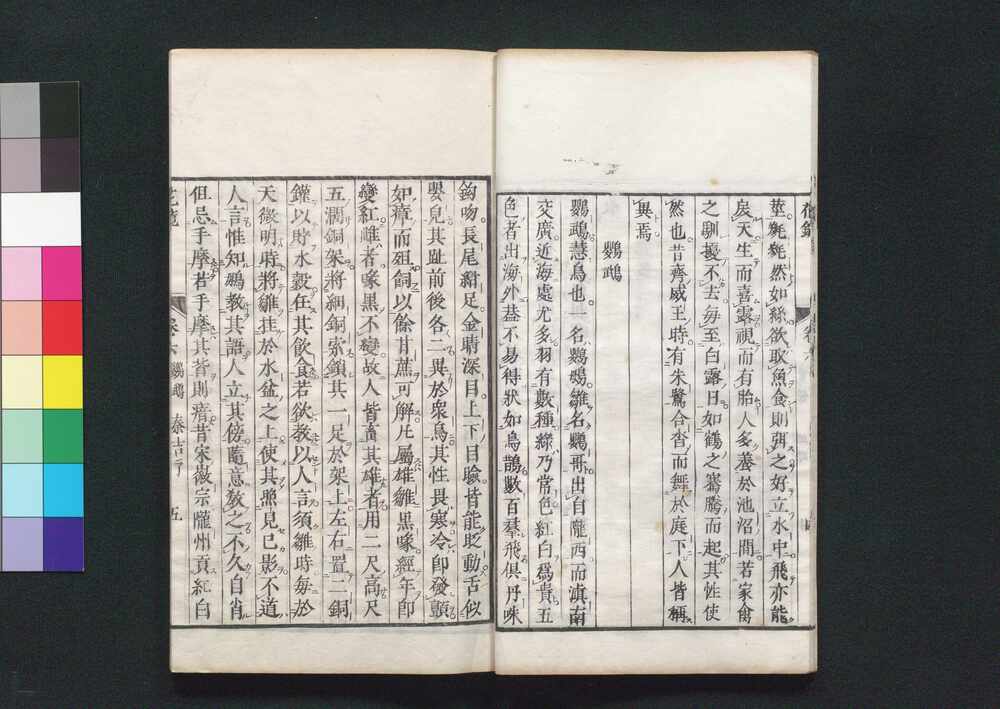 莖毿毿然如絲欲取魚食則弭之好立水中飛亦能
戾天生而喜露視而有胎人多養於池沼間若家禽
之馴擾不去每至白露日如鶴之騫騰而起其性使
然也昔齊威王時有朱鷺合沓而舞於庭下人皆稱
異焉
鸚鵡
鸚鵡慧鳥也一名鸚䳇雛名鸚哥出自隴西而滇南
交廣近海處尤多羽有數種綠乃常色紅白爲貴五
色者出海外葢不易得狀如烏鵲數百羣飛俱丹咮
鉤吻長尾紺足金睛深目上下目瞼皆能眨動舌似
嬰兒其趾前後各二異於衆鳥其性畏寒冷卽發顫
如瘴而殂飼以餘甘蔗可解凡屬雄雛黑喙經年卽
變紅雌者喙黑不變故人皆畜其雄者用二尺高尺
五濶銅架將細銅索鎖其一足於架上左右置二銅
鑵以貯水穀任其飲食若欲教以人言須雛時每於
天微明時將雛挂於水盆之上使其照見已影不道
人言惟知鵡教其語人立其傍隨意教之不久自肖
但忌手摩若手摩其背則瘖昔宋徽宗隴州貢紅白
花鏡
卷六 鸚鵡 秦吉了 五